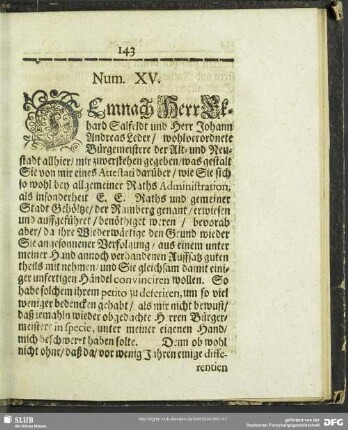 143
Num. XV.
DEmnach Herr Ek-
hard Salfeldt und Herr Johann
Andreas Leder / wohlverordnete
Bürgemeistere der Alt- und Neu-
stadt allhier / mir zuverstehen gegeben / was gestalt
Sie von mir eines Attestati darüber / wie Sie sich
so wohl bey allgemeiner Raths Administration,
als insonderheit E. E. Raths und gemeiner
Stadt Gehöltze / der Ramberg genant / erwiesen
und auffgeführet / benöthiget weren / bevorab
aber / da ihre Wiederwärtige den Grund wieder
Sie angesonnener Verfolgung / aus einem unter
meiner Hand annoch verhandenen Auffsatz guten
theils mit nehmen / und Sie gleichsam damit eini-
ger unfertigen Händel convinciren wollen. So
habe solchem ihrem petito zu deferiren, um so viel
weniger bedencken gehabt / als mir nicht bewust /
daß iemahln wieder obgedachte Herren Bürger-
meister in specie, unter meiner eigenen Hand /
mich beschweret haben solte. Denn ob wohl
nicht ohne / daß da / vor wenig Jahren einige diffe-
rentien
SLUB
Wir führen Wissen.
gefördert von der
Deutschen Forschungsgemeinschaft
DFG